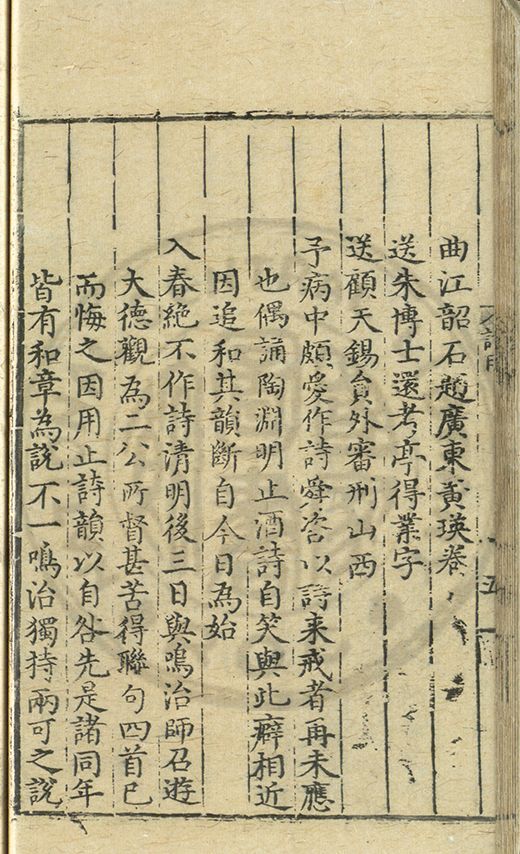 曲江韶石題廣東黃瑛卷
送朱博士還考亭得業字
送顧天錫員外審刑山西
予病中頗愛作詩舜咨以詩来戒者再未應
也偶誦陶淵明止酒詩自笑與此癖相近
因追和其韻斷自今日為始
入春絶不作詩清明後三日與鳴治師召遊
大德觀為二公所督甚苦得聯句四首已
而悔之因用止詩韻以自咎先是諸同年
皆有和章為說不一鳴治獨持兩可之說
五